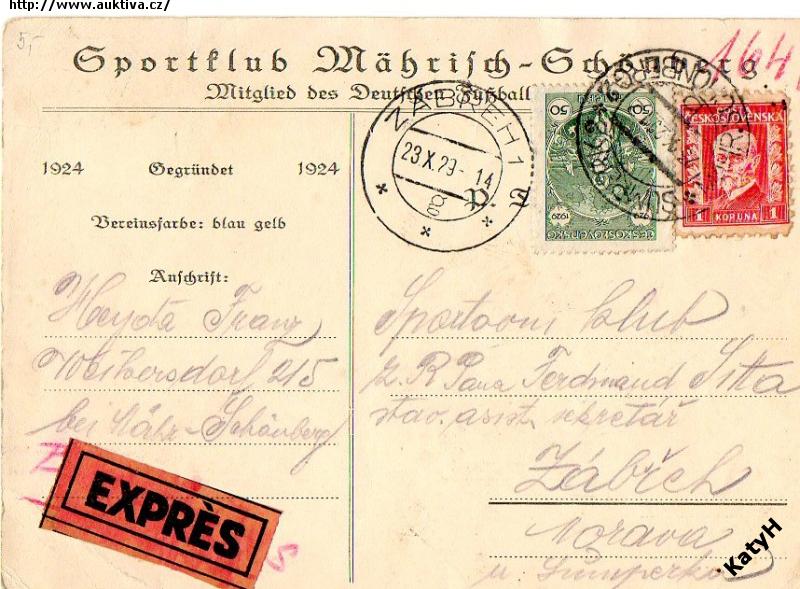 http://www.auktiva.cz/
5,-
164
Sportklub Mährisch-Schönberg
Mitglied des Deutschen Fußball
1924 Gegründet 1924
Vereinsfarbe: blau gelb
Anschrift:
Heyda Franz
Weikersdorf 215
bei Mähr. Schönberg
EXPRÈS
ZÁBŘEH 1
23.X.29-14
P.
50 50
1929
ČESKOSLOVENSKO
ČESKOSLOVENSKÁ
1 KORUNA 1
Sportovní klub
z. R Pana Ferdinand Sitta
stav. asist. sekretář
Zábřeh
Morava
u Šumperka
KatyH